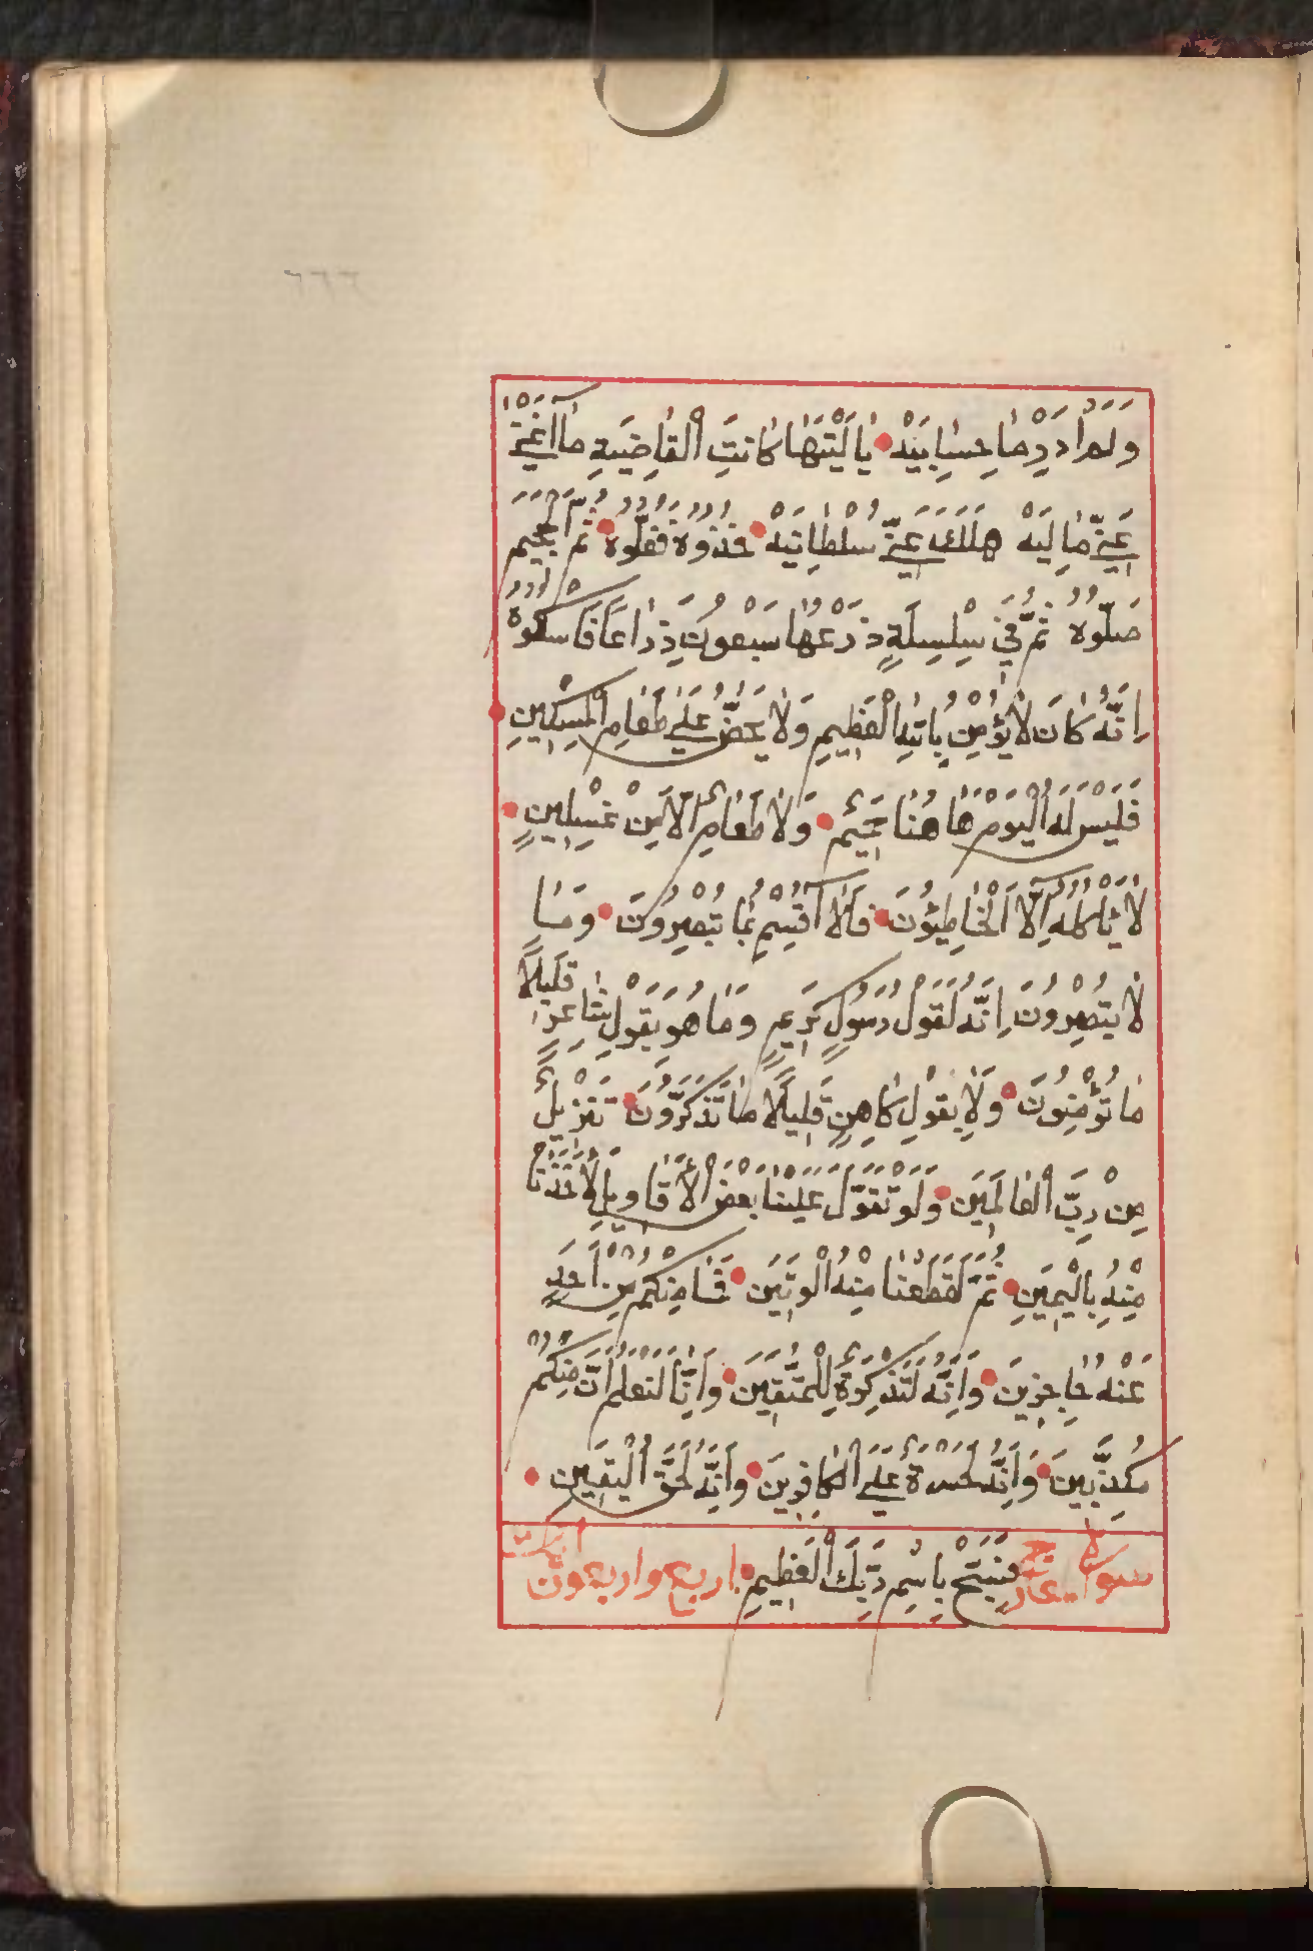 ٦٦٦
وَلَمْ اَدْرِ مَا حِسَابِيَهْ يَا لَيْتَهَا كَانَتِ الْقَاضِيَةِ مَا اَغْنٰى
عَنّى مَالِيَهْ هَلَكَ عَنّى سُلْطَانِيَهْ خُذُوهُ فَغُلُّوهُ ثُمَّ الْجَحِيمَ
صَلُّوهُ ثُمَّ فِي سِلْسِلَةٍ ذَرْعُهَا سَبْعُونَ ذِرَاعًا فَاسْلُكُوهُ
اِنَّهُ كَانَ لَا يُؤْمِنُ بِاللهِ الْعَظِيمِ وَلَا يَحُضُّ عَلٰى طَعَامِ الْمِسْكِينِ
فَلَيْسَ لَهُ الْيَوْمَ هَاهُنَا حَمِيمٌ وَلَا طَعَامٌ اِلَّا مِنْ غِسْلِينٍ
لَا يَأْكُلُهُ اِلَّا الْخَاطِئُونَ فَلَا اُقْسِمُ بِمَا تُبْصِرُونَ وَمَا
لَا تُبْصِرُونَ اِنَّهُ لَقَوْلُ رَسُولٍ كَرِيمٍ وَمَا هُوَ بِقَوْلِ شَاعِرٍ قَلِيلًا
مَا تُؤْمِنُونَ وَلَا بِقَوْلِ كَاهِنٍ قَلِيلًا مَا تَذَكَّرُونَ تَنْزِيلٌ
مِنْ رَبِّ الْعَالَمِينَ وَلَوْ تَقَوَّلَ عَلَيْنَا بَعْضَ الْاَقَاوِيلِ لَاَخَذْنَا
مِنْهُ بِالْيَمِينِ ثُمَّ لَقَطَعْنَا مِنْهُ الْوَتِينَ فَمَا مِنْكُمْ مِنْ اَحَدٍ
عَنْهُ حَاجِزِينَ وَاِنَّهُ لَتَذْكِرَةٌ لِلْمُتَّقِينَ وَاِنَّا لَنَعْلَمُ اَنَّ مِنْكُمْ
مُكَذِّبِينَ وَاِنَّهُ لَحَسْرَةٌ عَلَى الْكَافِرِينَ وَاِنَّهُ لَحَقُّ الْيَقِينِ
سورة المعارج فَسَبِّحْ بِاسْمِ رَبِّكَ الْعَظِيمِ اربع واربعون آيات